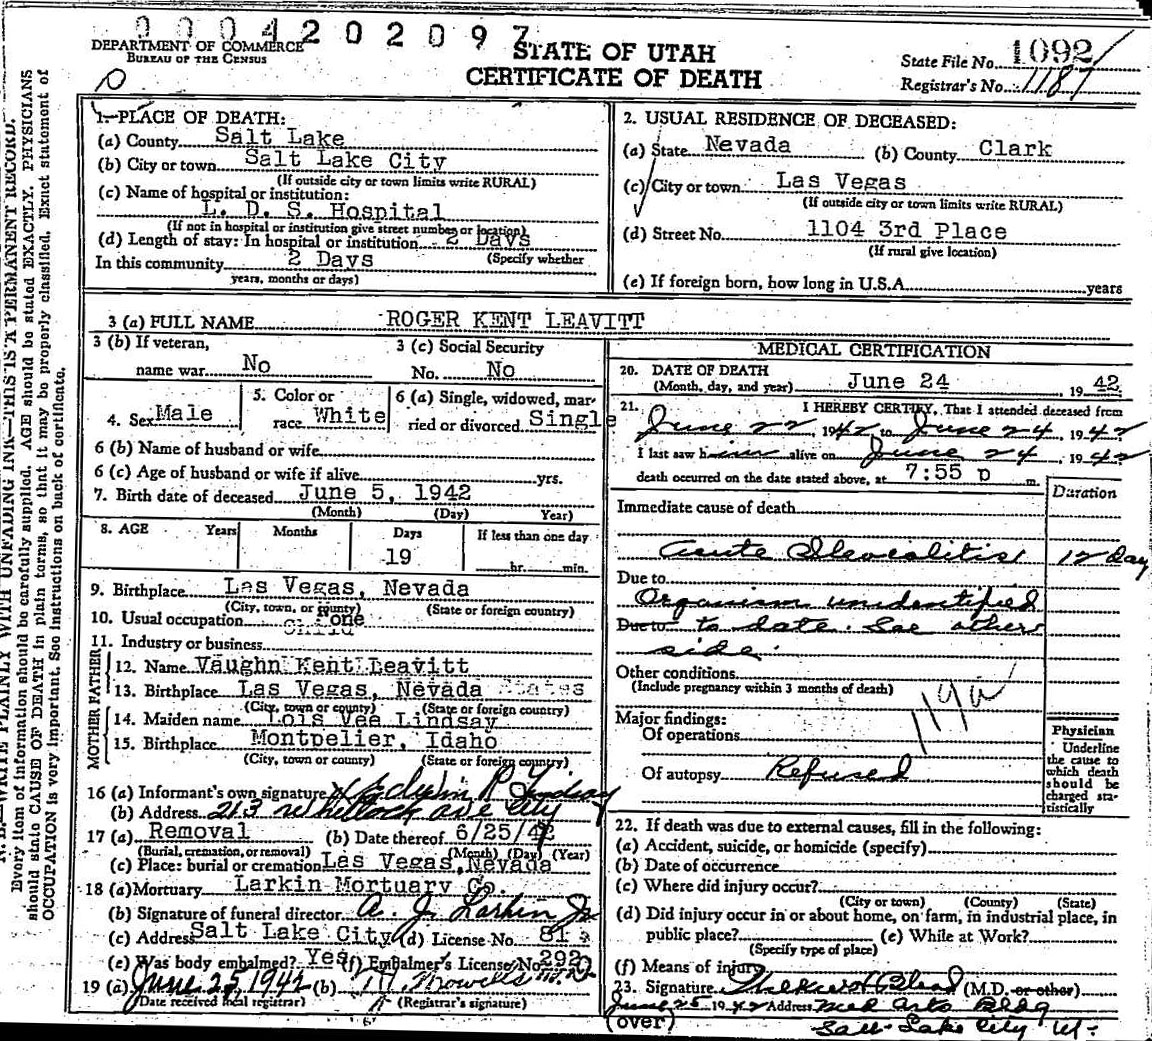 0004202097
DEPARTMENT OF COMMERCE
BUREAU OF THE CENSUS
STATE OF UTAH
CERTIFICATE OF DEATH
State File No. 1092
Registrar's No. 1187
N. B.—WRITE PLAINLY WITH UNFADING INK—THIS IS A PERMANENT RECORD.
Every item of information should be carefully supplied. AGE should be stated EXACTLY. PHYSICIANS
should state CAUSE OF DEATH in plain terms, so that it may be properly classified. Exact statement of
OCCUPATION is very important. See instructions on back of certificate.
1. PLACE OF DEATH:
(a) County Salt Lake
(b) City or town Salt Lake City
(If outside city or town limits write RURAL)
(c) Name of hospital or institution:
L. D. S. Hospital
(If not in hospital or institution give street number or location)
(d) Length of stay: In hospital or institution 2 Days
(Specify whether
In this community 2 Days
years, months or days)
2. USUAL RESIDENCE OF DECEASED:
(a) State Nevada (b) County Clark
(c) City or town Las Vegas
(If outside city or town limits write RURAL)
(d) Street No. 1104 3rd Place
(If rural give location)
(e) If foreign born, how long in U.S.A. years
3 (a) FULL NAME ROGER KENT LEAVITT
3 (b) If veteran,
name war No
3 (c) Social Security
No. No
4. Sex Male
5. Color or
race White
6 (a) Single, widowed, mar-
ried or divorced Single
6 (b) Name of husband or wife
6 (c) Age of husband or wife if alive yrs.
7. Birth date of deceased June 5, 1942
(Month) (Day) Year)
8. AGE Years Months Days If less than one day
19 hr. min.
9. Birthplace Las Vegas, Nevada
(City, town, or county) (State or foreign country)
10. Usual occupation None
Child
11. Industry or business
FATHER
12. Name Vaughn Kent Leavitt
13. Birthplace Las Vegas, Nevada States
(City, town or county) (State or foreign country)
MOTHER
14. Maiden name Lois Vee Lindsay
15. Birthplace Montpelier, Idaho
(City, town or county) (State or foreign country)
16 (a) Informant's own signature Edwin P Lindsay
(b) Address 213 Whitlock ave City
17 (a) Removal (b) Date thereof 6/25/42
(Burial, cremation, or removal) (Month) (Day) (Year)
(c) Place: burial or cremation Las Vegas, Nevada
18 (a) Mortuary Larkin Mortuary Co.
(b) Signature of funeral director A. J. Larkin Jr
(c) Address Salt Lake City (d) License No. 81
(e) Was body embalmed? Yes (f) Embalmer's License No. 292
19 (a) June 25, 1942 (b)
(Date received local registrar) (Registrar's signature)
MEDICAL CERTIFICATION
20. DATE OF DEATH
(Month, day, and year) June 24 1942
21. I HEREBY CERTIFY, That I attended deceased from
June 22 1942 to June 24 1942
I last saw him alive on June 24 1942
death occurred on the date stated above, at 7:55 p m.
Duration
Immediate cause of death
Acute Ileocolitis 12 day
Due to
Organism unidentified
Due to to date. See other
side.
Other conditions
(Include pregnancy within 3 months of death)
119a
Major findings:
Of operations
Of autopsy Refused
Physician
Underline
the cause to
which death
should be
charged sta-
tistically
22. If death was due to external causes, fill in the following:
(a) Accident, suicide, or homicide (specify)
(b) Date of occurrence
(c) Where did injury occur?
(City or town) (County) (State)
(d) Did injury occur in or about home, on farm, in industrial place, in
public place? (e) While at Work?
(Specify type of place)
(f) Means of injury
23. Signature (M.D. or other)
June 25 1942 Address Med Arts Bldg
(over) Salt Lake City Ut.